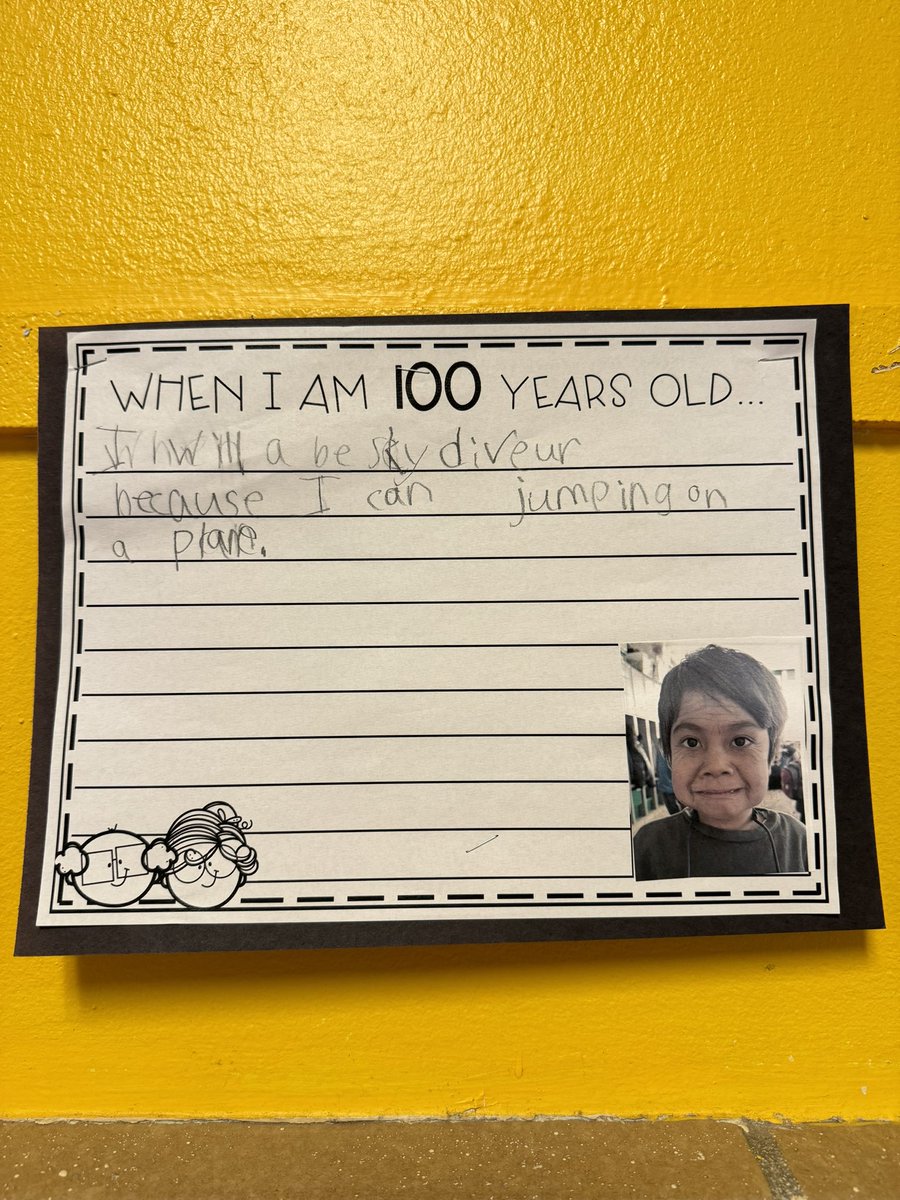 WHEN I AM 100 YEARS OLD...
I will a be sky diveur
because I can jumping on
a plane.